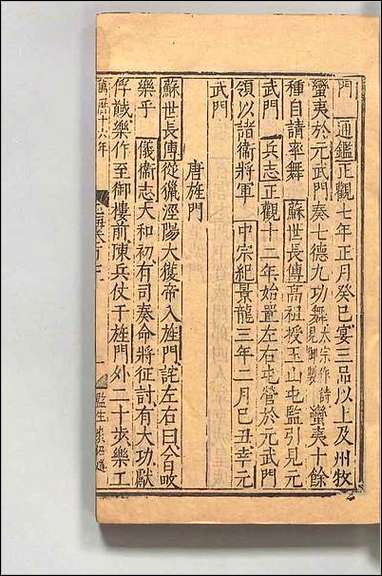 門 通鑑正觀七年正月癸巳宴三品以上及州牧
蠻夷於元武門奏七德九功舞太宗作詩見御製蠻夷十餘
種自請率舞 蘇世長傳高祖授玉山屯監引見元
武門 兵志正觀十二年始置左右屯營於元武門
領以諸衛將軍 中宗紀景龍三年二月己丑幸元
武門
唐旌門
蘇世長傳從獵涇陽大獲帝入旌門詫左右曰今日畋
樂乎 儀衛志大和初有司奏命將征討有大功獻
俘馘樂作至御樓前陳兵仗于旌門外二十步樂工
萬曆十六年
監生